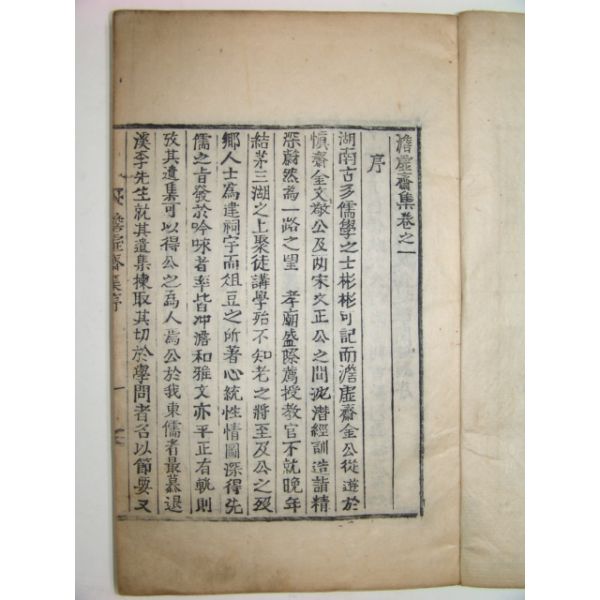 澹虛齋集卷之一
序
湖南古多儒學之士彬彬可記而澹虛齋金公從遊於
愼齋金文敬公及兩宋文正公之間沉潛經訓造詣精
深蔚然為一路之望 孝廟盛際薦授教官不就晚年
結茅三湖之上聚徒講學殆不知老之將至及公之歿
鄉人士為建祠宇而俎豆之所著心統性情圖深得先
儒之旨發於吟咏者率皆冲澹和雅文亦平正有軌則
攷其遺集可以得公之為人焉公於我東儒者最慕退
溪李先生就其遺集揀取其切於學問者名以節要又
澹虛齋集序
一